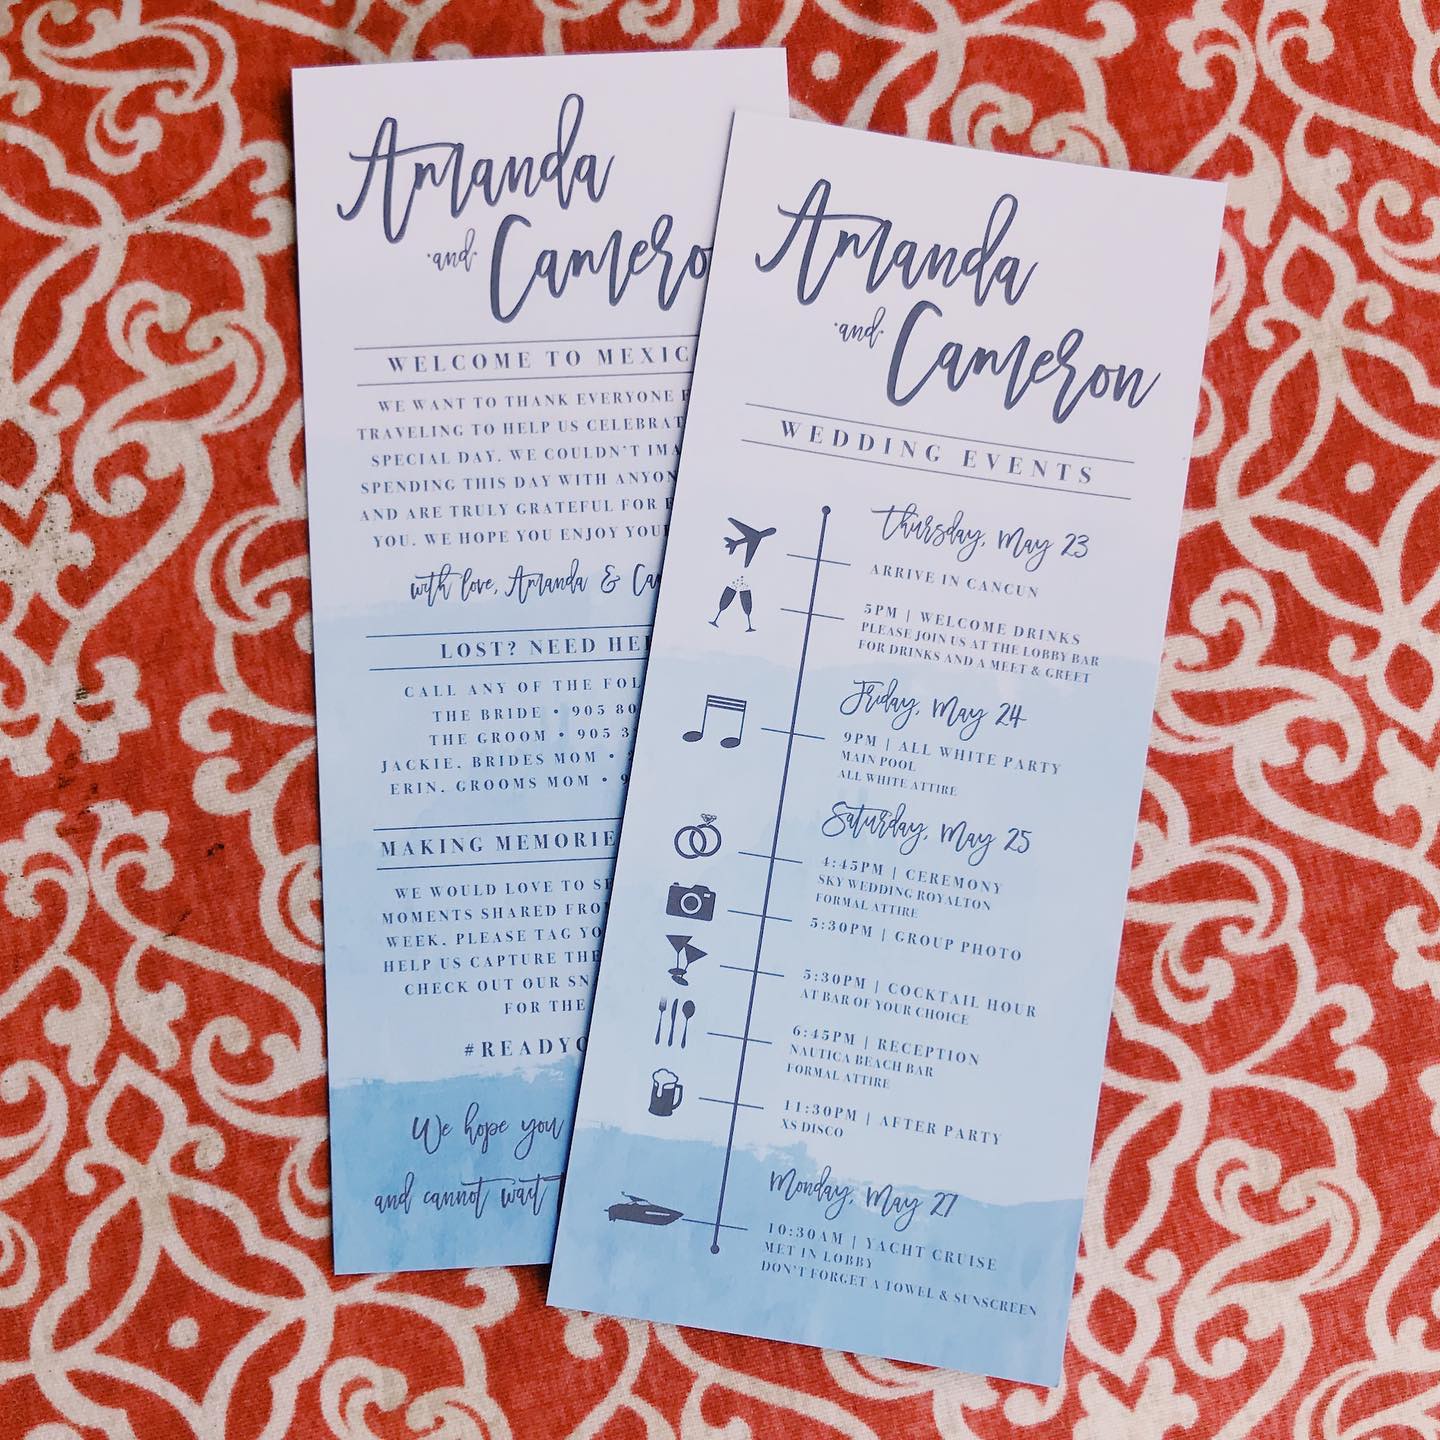 Amanda
·and· Camero
WELCOME TO MEXIC
WE WANT TO THANK EVERYONE
TRAVELING TO HELP US CELEBRAT
SPECIAL DAY. WE COULDN'T IMA
SPENDING THIS DAY WITH ANYON
AND ARE TRULY GRATEFUL FOR
YOU. WE HOPE YOU ENJOY YOUR
with love, Amanda & Ca
LOST? NEED HEL
CALL ANY OF THE FOL
THE BRIDE • 905 80
THE GROOM • 905 3
JACKIE, BRIDES MOM •
ERIN, GROOMS MOM • 9
MAKING MEMORIE
WE WOULD LOVE TO SE
MOMENTS SHARED FRO
WEEK. PLEASE TAG YO
HELP US CAPTURE THE
CHECK OUT OUR SN
FOR THE
#READYC
We hope you
and cannot wait
Amanda
·and· Cameron
WEDDING EVENTS
Thursday, May 23
ARRIVE IN CANCUN
5PM | WELCOME DRINKS
PLEASE JOIN US AT THE LOBBY BAR
FOR DRINKS AND A MEET & GREET
Friday, May 24
9PM | ALL WHITE PARTY
MAIN POOL
ALL WHITE ATTIRE
Saturday, May 25
4:45PM | CEREMONY
SKY WEDDING ROYALTON
FORMAL ATTIRE
5:30PM | GROUP PHOTO
5:30PM | COCKTAIL HOUR
AT BAR OF YOUR CHOICE
6:45PM | RECEPTION
NAUTICA BEACH BAR
FORMAL ATTIRE
11:30PM | AFTER PARTY
XS DISCO
Monday, May 27
10:30AM | YACHT CRUISE
MET IN LOBBY
DON'T FORGET A TOWEL & SUNSCREEN